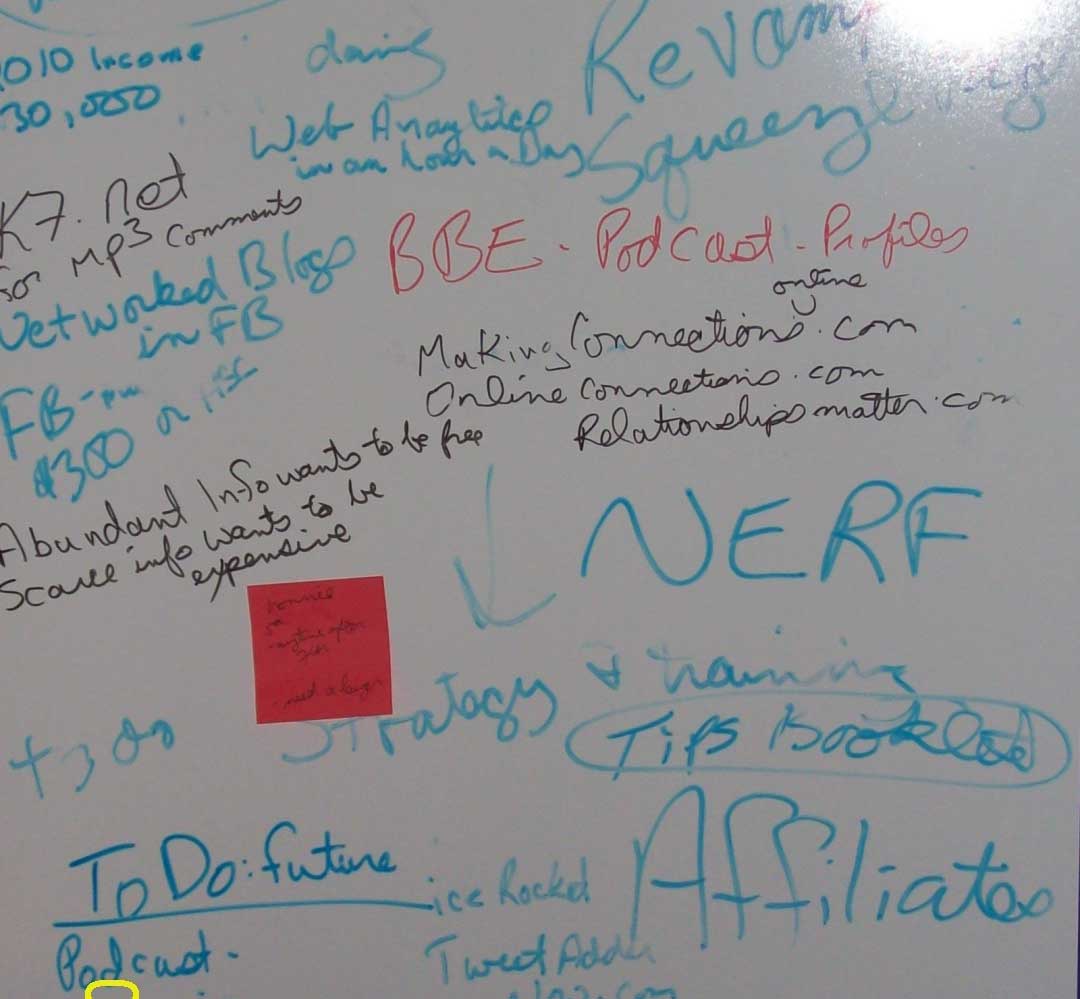 2010 Income
30,000
daing
Revam
Web Anaytics
in an hour a Day
Squeeze
K7.net
for MP3 Comments
Networked Blogs
in FB
BBE - Podcast - Profiles
online
Making Connections.com
Online Connections.com
Relationshipsmatter.com
FB-
$300 or
Abundant Info wants to be free
Scarce info wants to be
expensive
NERF
- need a
Strategy & training
Tips Booklet
To Do: future
ice Rocket
Affiliates
Podcast -
Tweet Adder